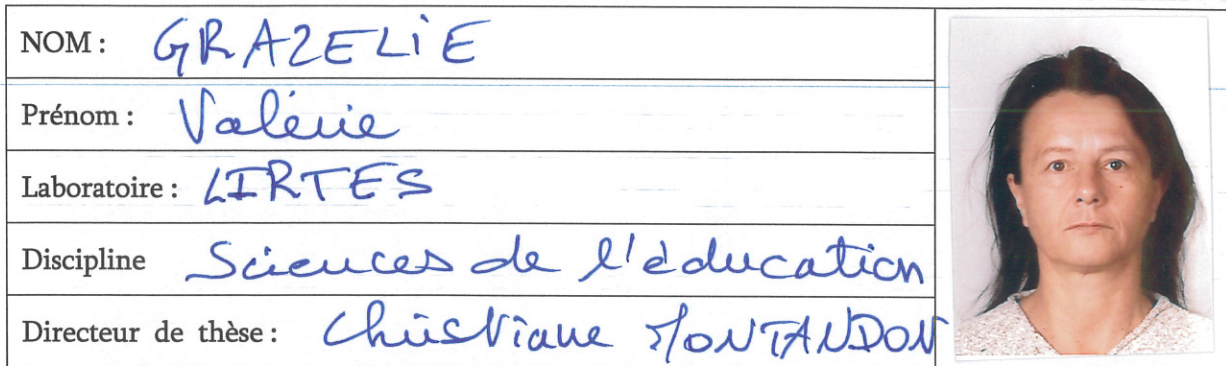 NOM : GRAZELIE
Prénom : Valérie
Laboratoire : LIRTES
Discipline Sciences de l'éducation
Directeur de thèse : Christiane MONTANDON